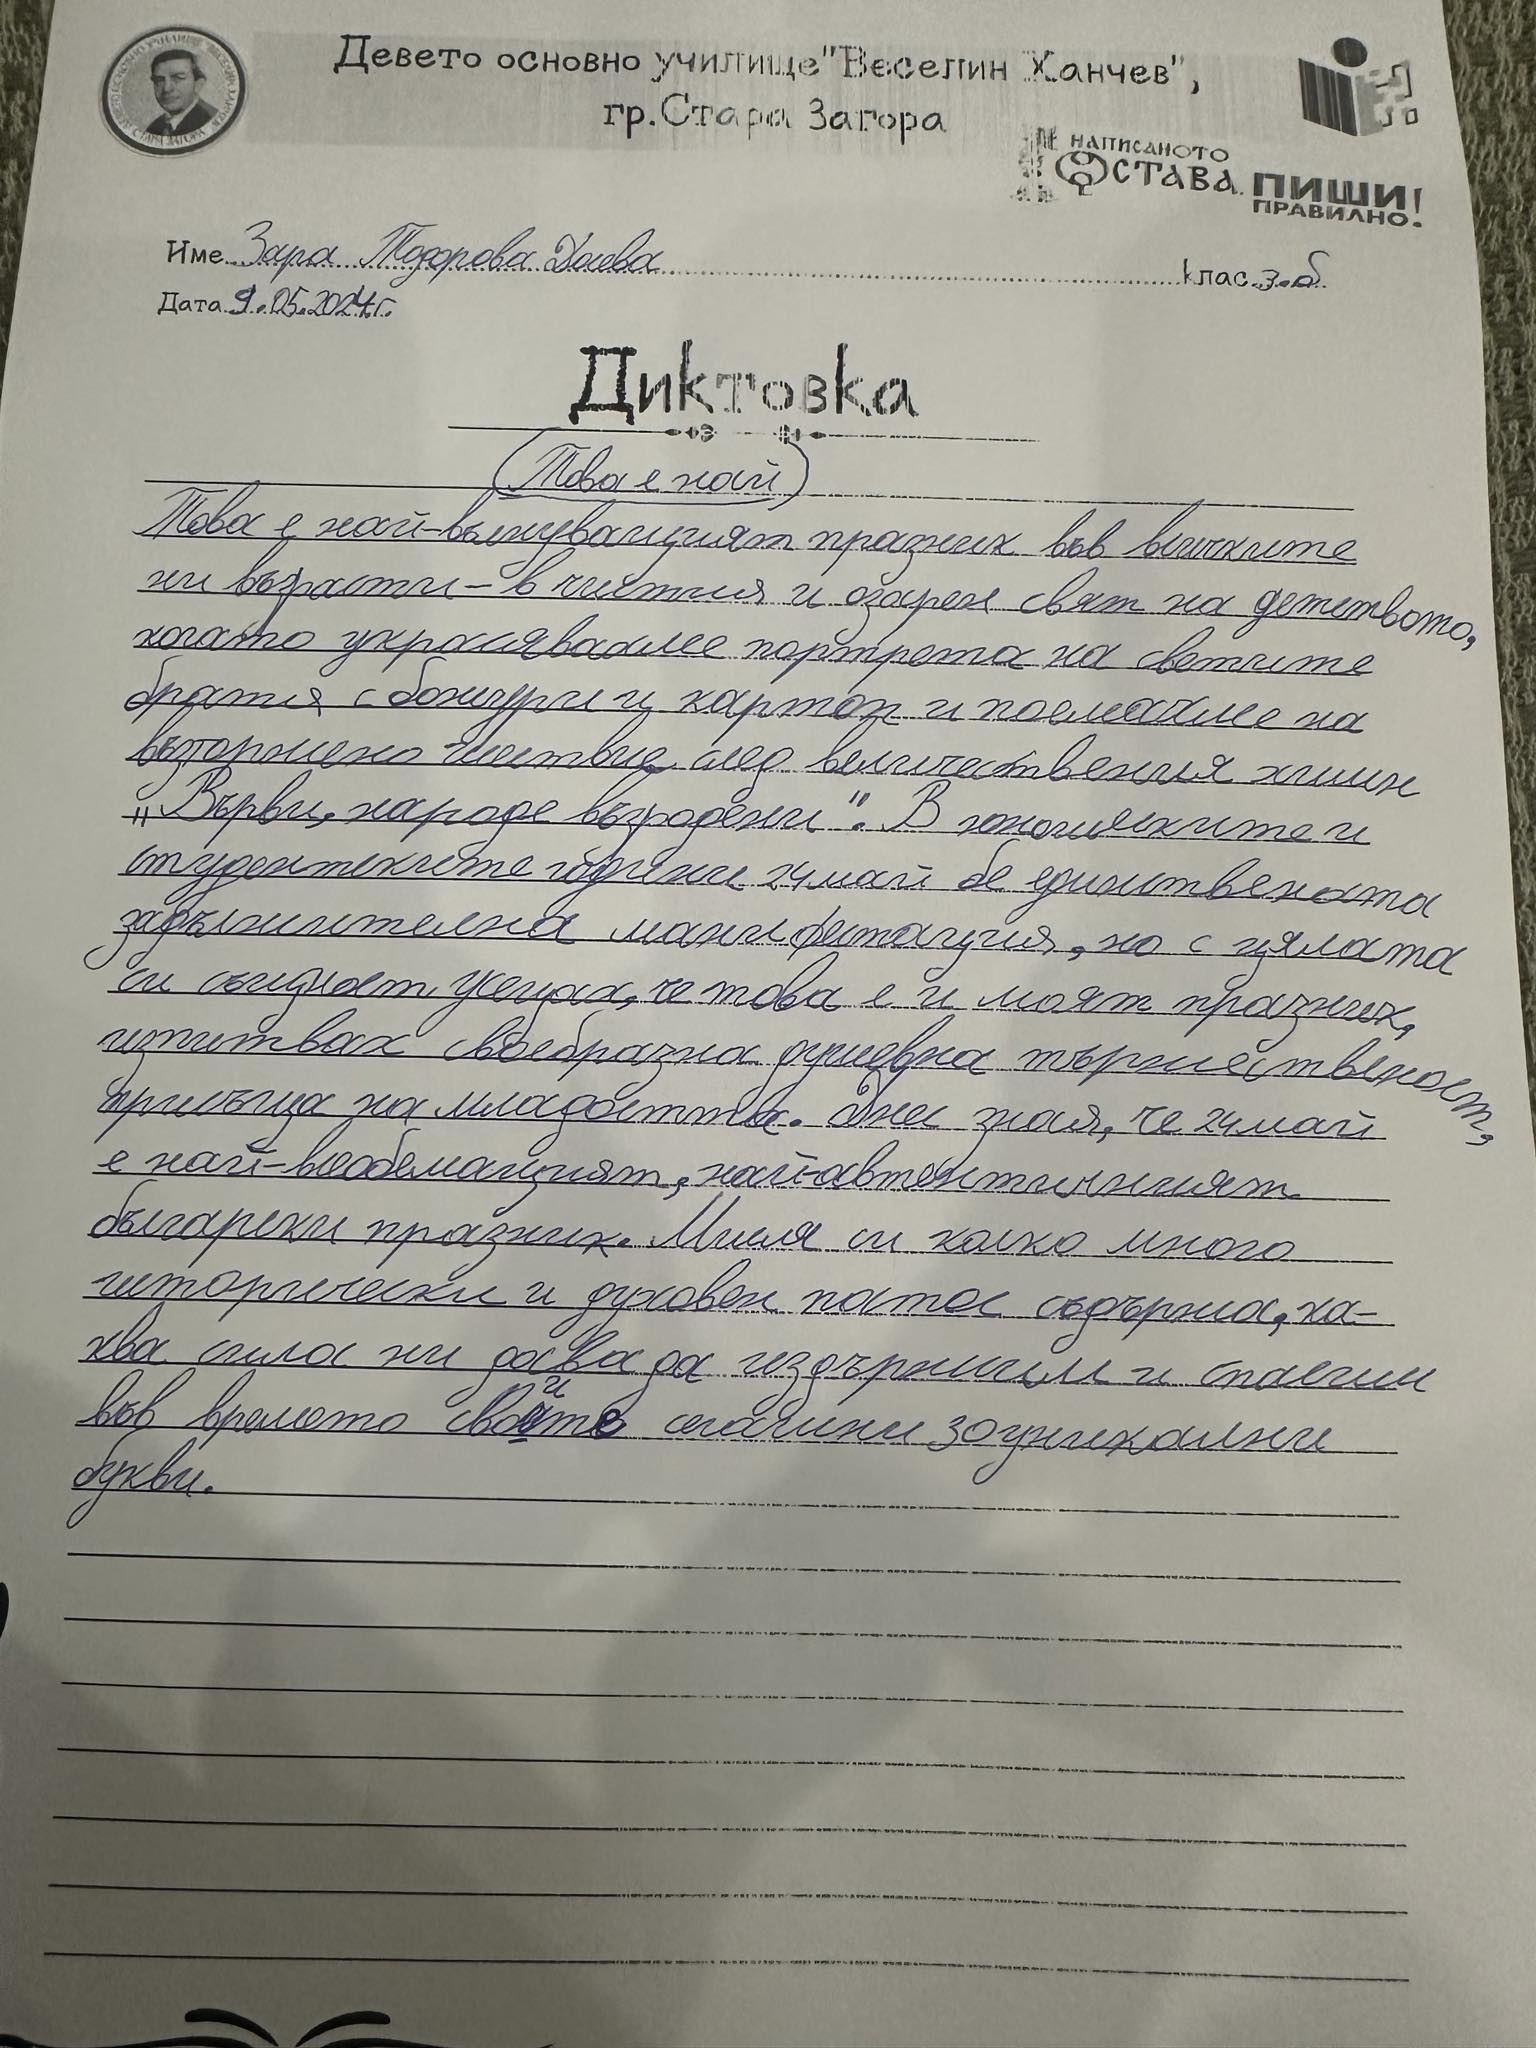 Девето основно училище "Веселин Ханчев",
гр.Стара Загора
НАПИСАНОТО
ОСТАВА.
ПИШИ!
ПРАВИЛНО.
Име Зара Тодорова Клас 3.б
Дата 9.05.2024г.
Диктовка
(Това е най)
Това е най-вълнуващият празник във всичките
ни възрасти – в чистия и озарен свят на детството,
когато украсявахме портрета на светите
братя с божури и картон и поемахме на
възторжено шествие след величествения химн
„Върви, народе възродени". В юношеските и
студентските години 24 май бе единствената
задължителна манифестация, но с цялата
си същност усещах, че това е и моят празник,
изпитвах своебразна душевна тържественост,
присъща на младостта. Днес зная, че 24 май
е най-всеобемащият, най-автентичният
български празник. Мисля си колко много
исторически и духовен патос съдържа, ка-
ква сила ни дава да издържим и спасим
във времето своите сегашни
букви.